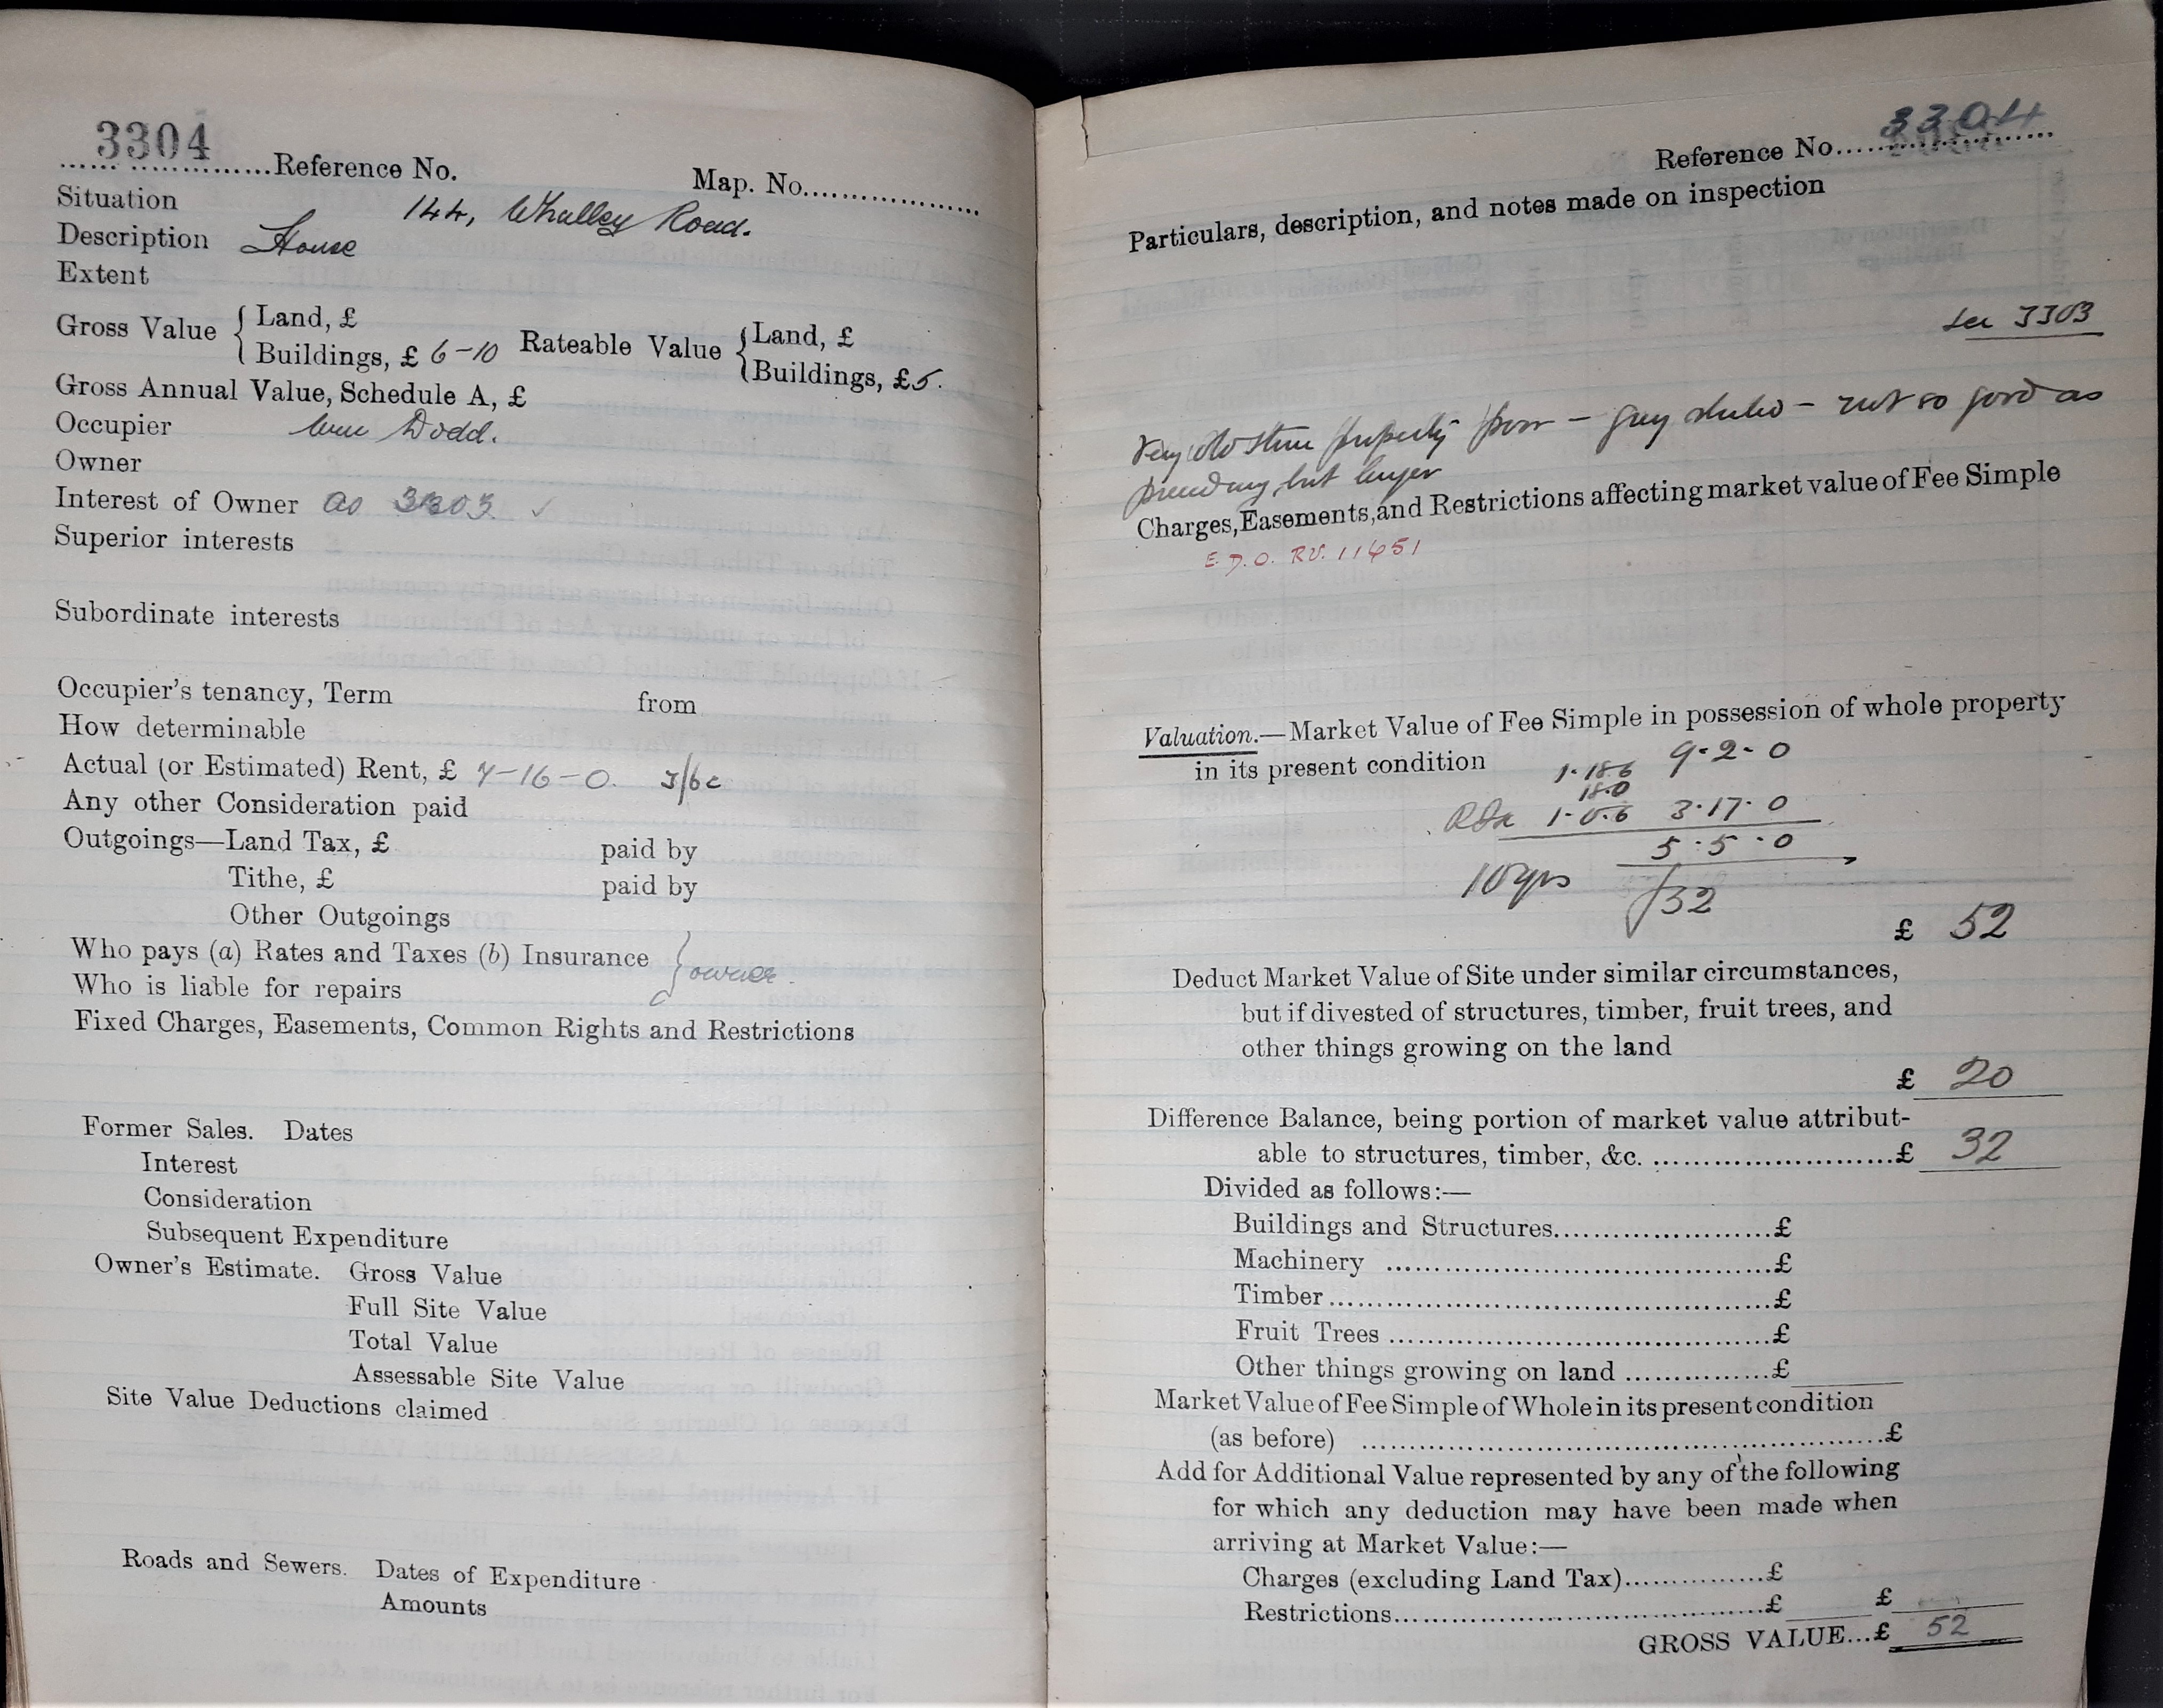 3304
...... ...............Reference No. Map. No..................
Situation 144, Whalley Road.
Description House
Extent
Gross Value { Land, £
Buildings, £ 6-10 Rateable Value { Land, £
Buildings, £5.
Gross Annual Value, Schedule A, £
Occupier Wm Dodd.
Owner
Interest of Owner as 3303 ✓
Superior interests
Subordinate interests
Occupier's tenancy, Term from
How determinable
Actual (or Estimated) Rent, £ 7-16-0. 3/6
Any other Consideration paid
Outgoings—Land Tax, £ paid by
Tithe, £ paid by
Other Outgoings
Who pays (a) Rates and Taxes (b) Insurance } owner.
Who is liable for repairs
Fixed Charges, Easements, Common Rights and Restrictions
Former Sales. Dates
Interest
Consideration
Subsequent Expenditure
Owner's Estimate. Gross Value
Full Site Value
Total Value
Assessable Site Value
Site Value Deductions claimed
Roads and Sewers. Dates of Expenditure
Amounts
Reference No. 3304
Particulars, description, and notes made on inspection
See 3303
Very old stone property poor — grey slated — not so good as
preceding but larger
Charges, Easements, and Restrictions affecting market value of Fee Simple
Valuation.—Market Value of Fee Simple in possession of whole property
in its present condition 9-2-0
1-18-6
18-0
1-0-6 3-17-0
5-5-0
10 yrs
32
£ 52
Deduct Market Value of Site under similar circumstances,
but if divested of structures, timber, fruit trees, and
other things growing on the land
£ 20
Difference Balance, being portion of market value attribut-
able to structures, timber, &c. ............................£ 32
Divided as follows:—
Buildings and Structures.........................£
Machinery ............................................£
Timber...................................................£
Fruit Trees ............................................£
Other things growing on land ................£
Market Value of Fee Simple of Whole in its present condition
(as before) ............................................................£
Add for Additional Value represented by any of the following
for which any deduction may have been made when
arriving at Market Value:—
Charges (excluding Land Tax)................£
Restrictions...........................................£ £
GROSS VALUE...£ 52